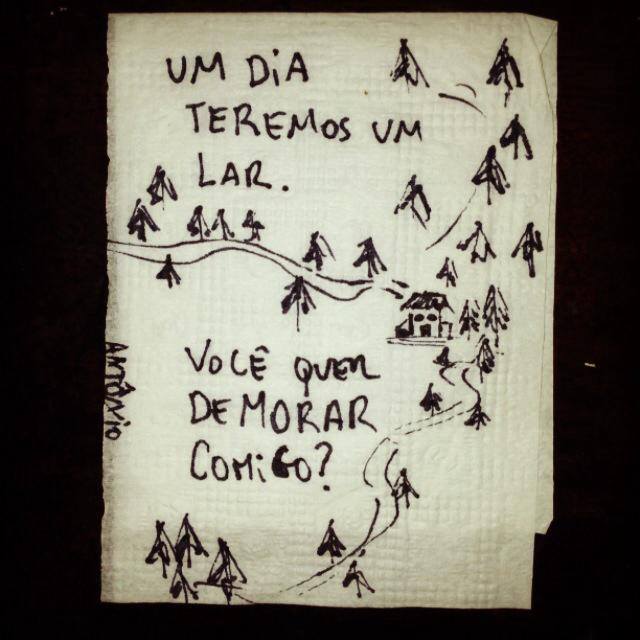 UM DiA
TEREMOS UM
LAR.
VOCÊ QUER
DEMORAR
COMiGO?
ANTÔNiO